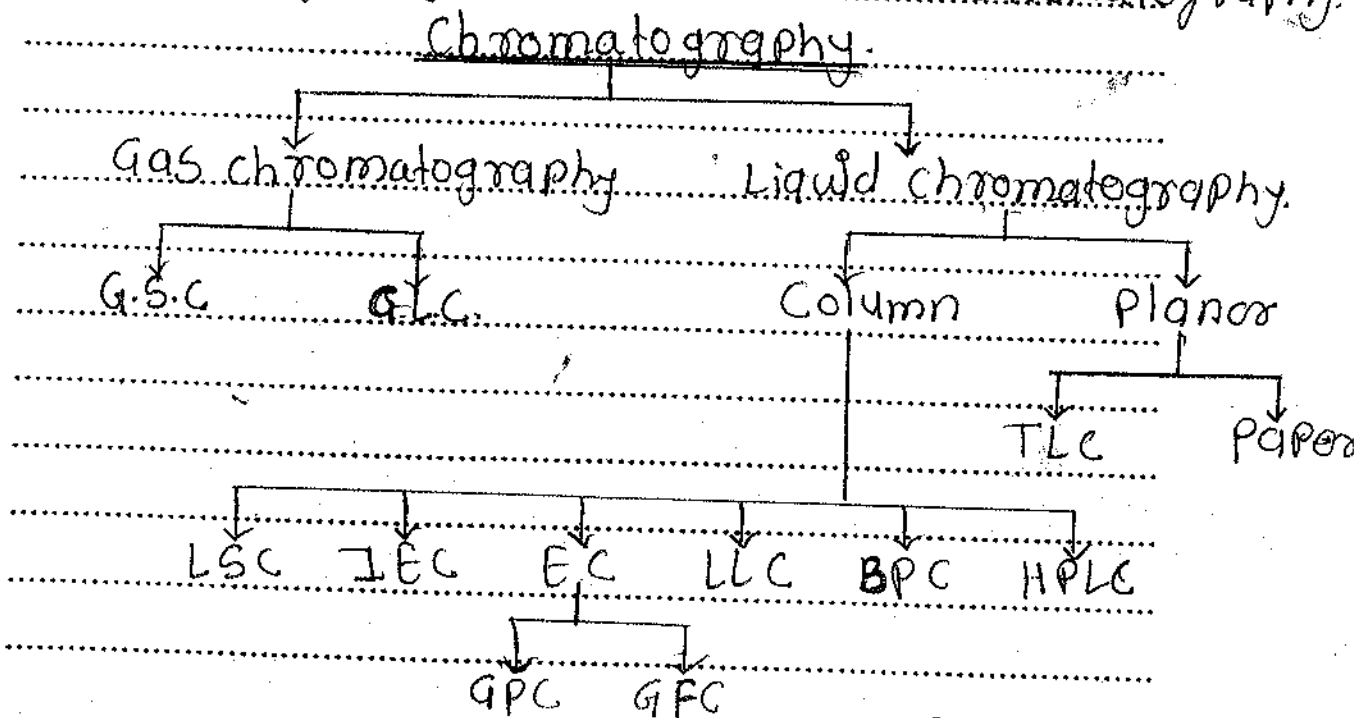 Chromatography.
Gas chromatography Liquid chromatography.
G.S.C G.L.C. Column Planar
TLC Paper
LSC IEC EC LLC BPC HPLC
GPC GFC